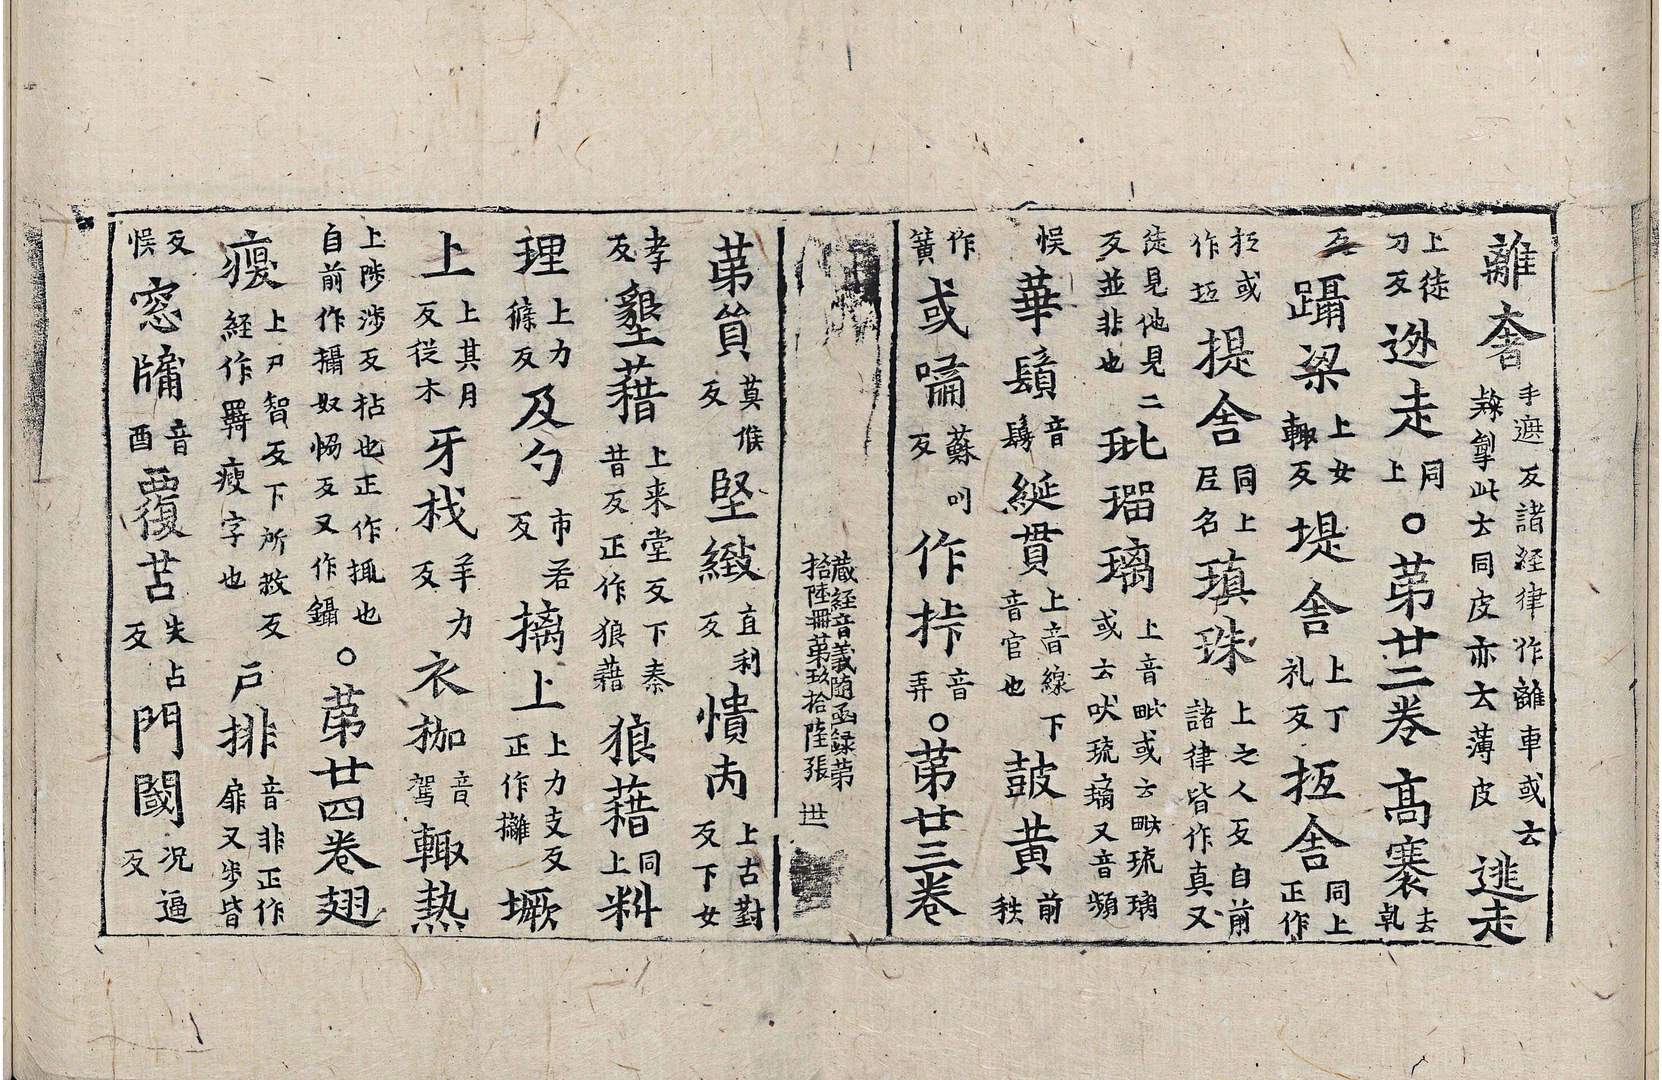 離奢手遮反諸經律作離車或云䌫㨖此云同皮亦云薄皮逃走
上徒刀反迯走同上○苐廿二卷髙褰去乹
反躡梁上女輙反堤舎上丁礼反抂舎同上正作
抂或作坘提舎同上𡰱名瑱珠上之人反自前諸律皆作真又
徒見他見二反並非也玭瑠璃上音毗或云毗琉璃或云吠琉璃又音頻
悮華鬚音鬚綖貫上音線下音官也皷黄前秩
作簧或嘯蘇叫反作挊音弄○苐廿三卷
藏經音義随函録第拾陸冊苐玖拾陸張 世
苐貿莫候反堅緻直利反憒丙上古對反下女
孝反墾藉上来堂反下秦昔反正作狼藉狼藉同上料
理上力條反及勺市若反摛上上力支反正作攡橛
上上其月反從木牙杙羊力反衣枷音駕輙熱
上陟涉反拈也正作輒也自前作攝奴惕反又作鑷○苐廿四卷翅
㾎上尸智反下所救反經作羇瘦字也戶排音非正作扉又步皆
反悮窓牖音酉覆苫失占反門閾况逼反